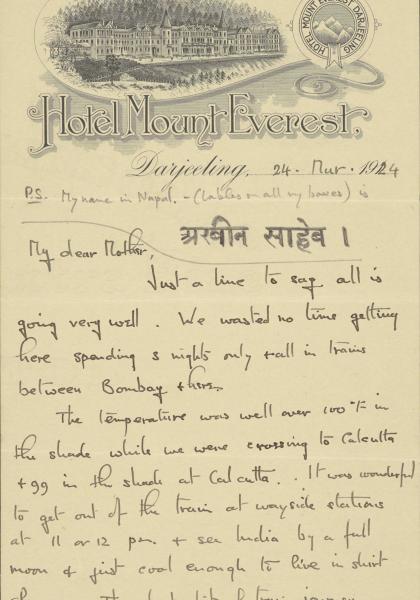 HOTEL MOUNT EVEREST DARJEELING
Hotel Mount Everest,
Darjeeling, 24. Mar. 1924
P.S. My name in Nepal. - (labels on all my boxes) is
अरवीन साहेब ।
My dear Mother,
Just a line to say all is
going very well. We wasted no time getting
here spending 3 nights only & all in trains
between Bombay & here.
The temperature was well over 100°F in
the shade while we were crossing to Calcutta
& 99 in the shade at Calcutta. . It was wonderful
to get out of the train at wayside stations
at 11 or 12 pm. & see India by a full
moon & just cool enough to live in shirt